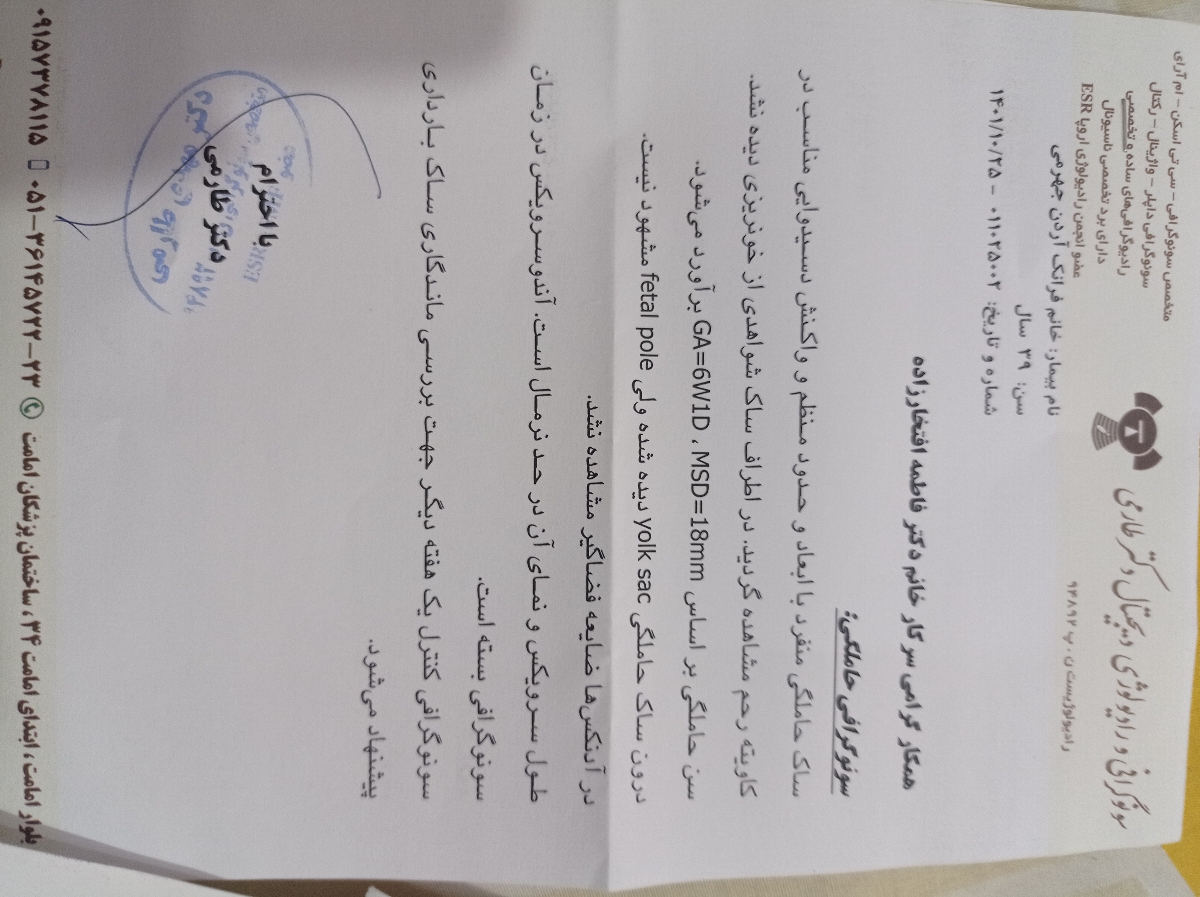 سونوگرافی و رادیولوژی دیجیتال دکتر طارمی
رادیولوژیست ن . پ ۹۳۸۹۲
متخصص سونوگرافی - سی تی اسکن - ام آر آی
سونوگرافی داپلر - واژینال - رکتال
رادیوگرافی‌های ساده و تخصصی
دارای برد تخصصی ناسیونال
عضو انجمن رادیولوژی اروپا ESR
نام بیمار: خانم فرانک آردن جهرمی
سن: ۳۹ سال
شماره و تاریخ: ۰۱۱۰۲۵۰۰۲ - ۱۴۰۱/۱۰/۲۵
همکار گرامی سرکار خانم دکتر فاطمه افتخارزاده
سونوگرافی حاملگی:
ساک حاملگی منفرد با ابعاد و حدود منظم و واکنش دسیدوایی مناسب در
کاویته رحم مشاهده گردید. در اطراف ساک شواهدی از خونریزی دیده نشد.
سن حاملگی بر اساس GA=6W1D ، MSD=18mm برآورد می‌شود.
درون ساک حاملگی yolk sac دیده شده ولی fetal pole مشهود نیست.
در آدنکس‌ها ضایعه فضاگیر مشاهده نشد.
طول سرویکس و نمای آن در حد نرمال است. آندوسرویکس در زمان
سونوگرافی بسته است.
سونوگرافی کنترل یک هفته دیگر جهت بررسی ماندگاری ساک بارداری
پیشنهاد می‌شود.
با احترام
دکتر طارمی
بلوار امامت ، ابتدای امامت ۳۴ ، ساختمان پزشکان امامت ۰۵۱-۳۶۱۴۵۷۲۲-۲۳ ۰۹۱۵۷۳۷۸۱۱۵